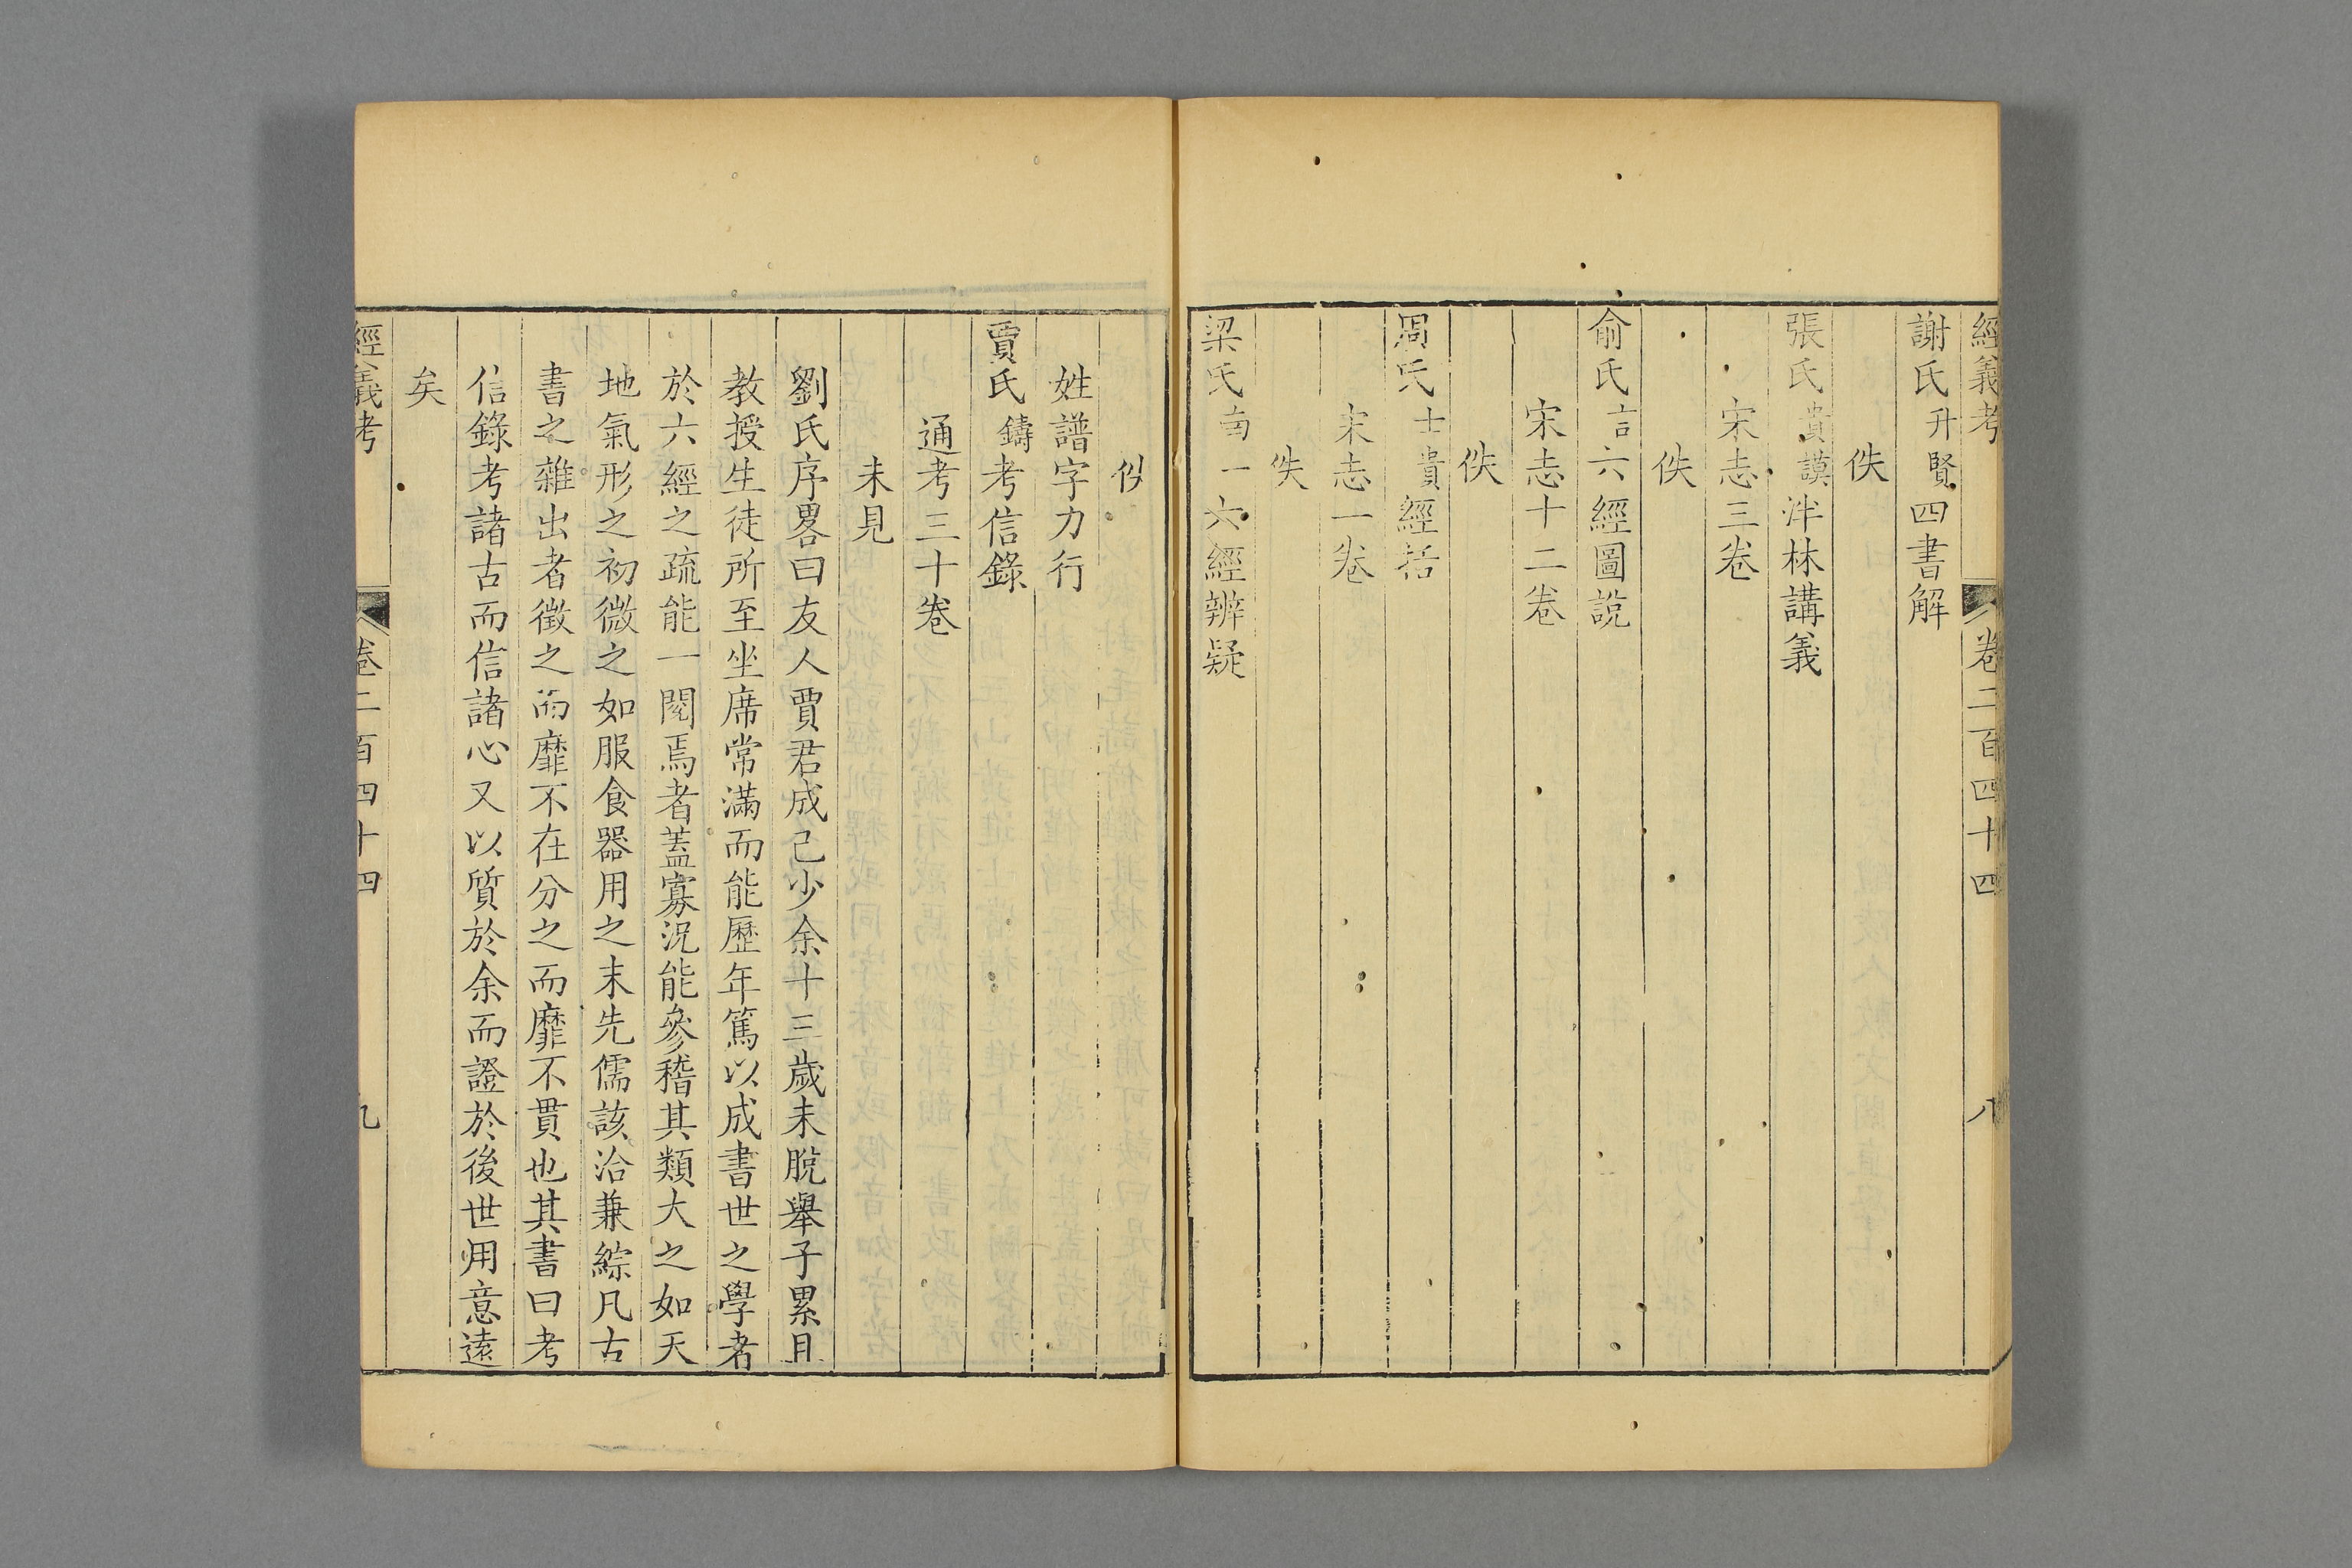 經義考
卷二百四十四
八
謝氏升賢四書解
佚
張氏貴謨泮林講義
宋志三卷
佚
俞氏言六經圖說
宋志十二卷
佚
周氏士貴經括
宋志一卷
佚
梁氏南一六經辨疑
佚
姓譜字力行
賈氏鑄考信錄
通考三十卷
未見
劉氏序畧曰友人賈君成己少余十三歲未脫舉子累月
教授生徒所至坐席常滿而能歷年篤以成書世之學者
於六經之疏能一閱焉者蓋寡況能參稽其類大之如天
地氣形之初微之如服食器用之末先儒該洽兼綜凡古
書之雜出者徵之而靡不在分之而靡不貫也其書曰考
信錄考諸古而信諸心又以質於余而證於後世用意遠
矣
經義考
卷二百四十四
九